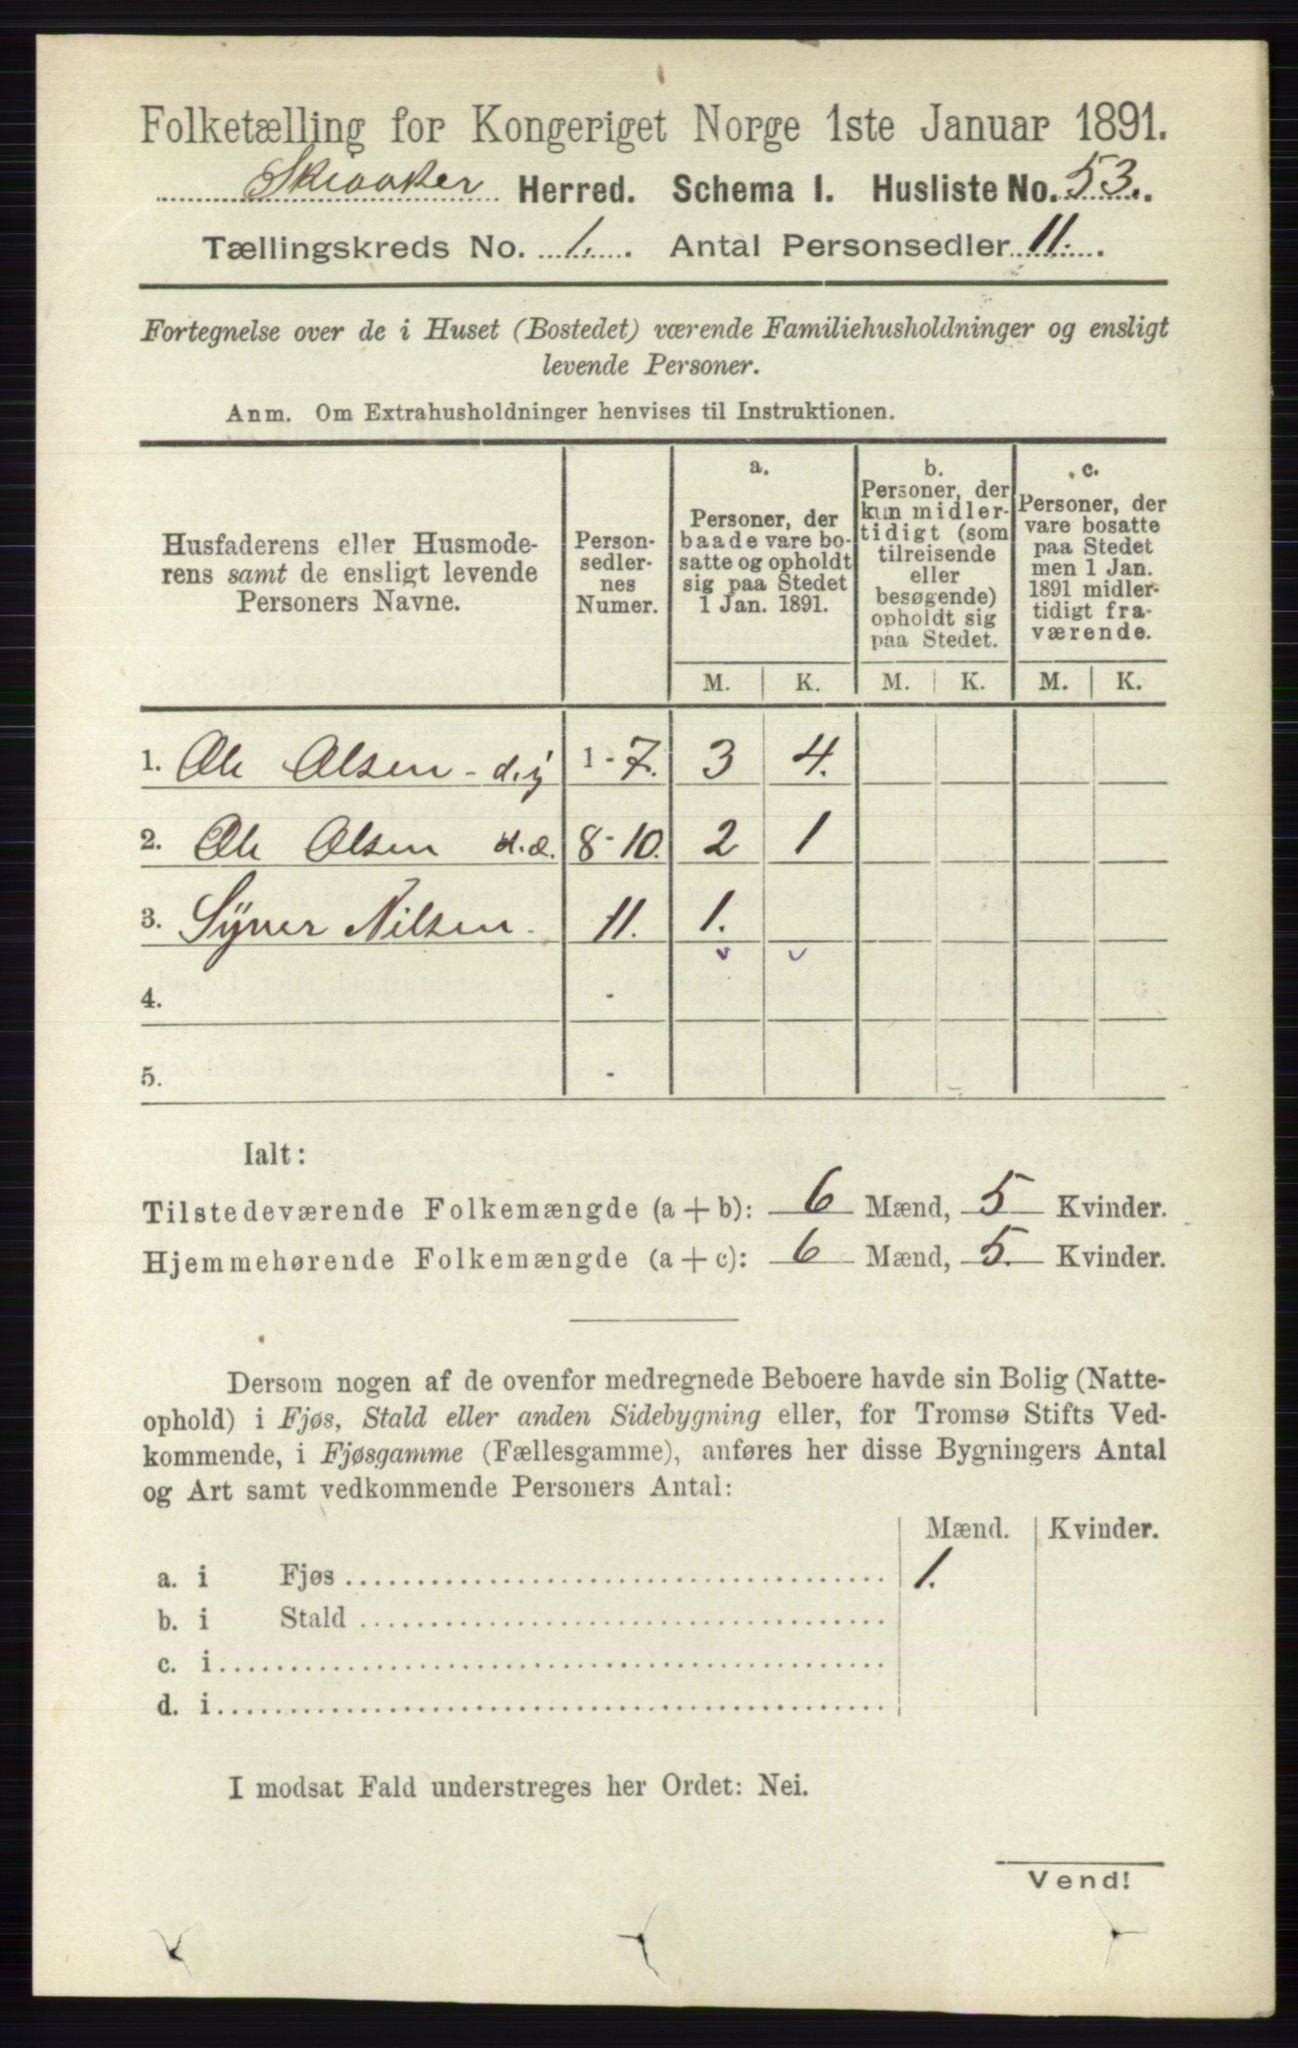 Folketælling for Kongeriget Norge 1ste Januar 1891.
Skiaaker Herred. Schema I. Husliste No. 53.
Tællingskreds No. 1. Antal Personsedler 11.
Fortegnelse over de i Huset (Bostedet) værende Familiehusholdninger og ensligt
levende Personer.
Anm. Om Extrahusholdninger henvises til Instruktionen.
Husfaderens eller Husmode-
rens samt de ensligt levende
Personers Navne.
Person-
sedler-
nes
Numer.
a.
Personer, der
baade vare bo-
satte og opholdt
sig paa Stedet
1 Jan. 1891.
b.
Personer, der
kun midler-
tidigt (som
tilreisende
eller
besøgende)
opholdt sig
paa Stedet.
c.
Personer, der
vare bosatte
paa Stedet
men 1 Jan.
1891 midler-
tidigt fra-
værende.
M. K. M. K. M. K.
1. Ole Olsen - d.y 1 - 7. 3 4.
2. Ole Olsen d.æ. 8-10. 2 1
3. Syver Nilsen. 11. 1.
4. -
5. -
Ialt:
Tilstedeværende Folkemængde (a + b): 6 Mænd, 5 Kvinder.
Hjemmehørende Folkemængde (a + c): 6 Mænd, 5. Kvinder.
Dersom nogen af de ovenfor medregnede Beboere havde sin Bolig (Natte-
ophold) i Fjøs, Stald eller anden Sidebygning eller, for Tromsø Stifts Ved-
kommende, i Fjøsgamme (Fællesgamme), anføres her disse Bygningers Antal
og Art samt vedkommende Personers Antal:
Mænd. Kvinder.
a. i Fjøs 1.
b. i Stald
c. i
d. i
I modsat Fald understreges her Ordet: Nei.
Vend!